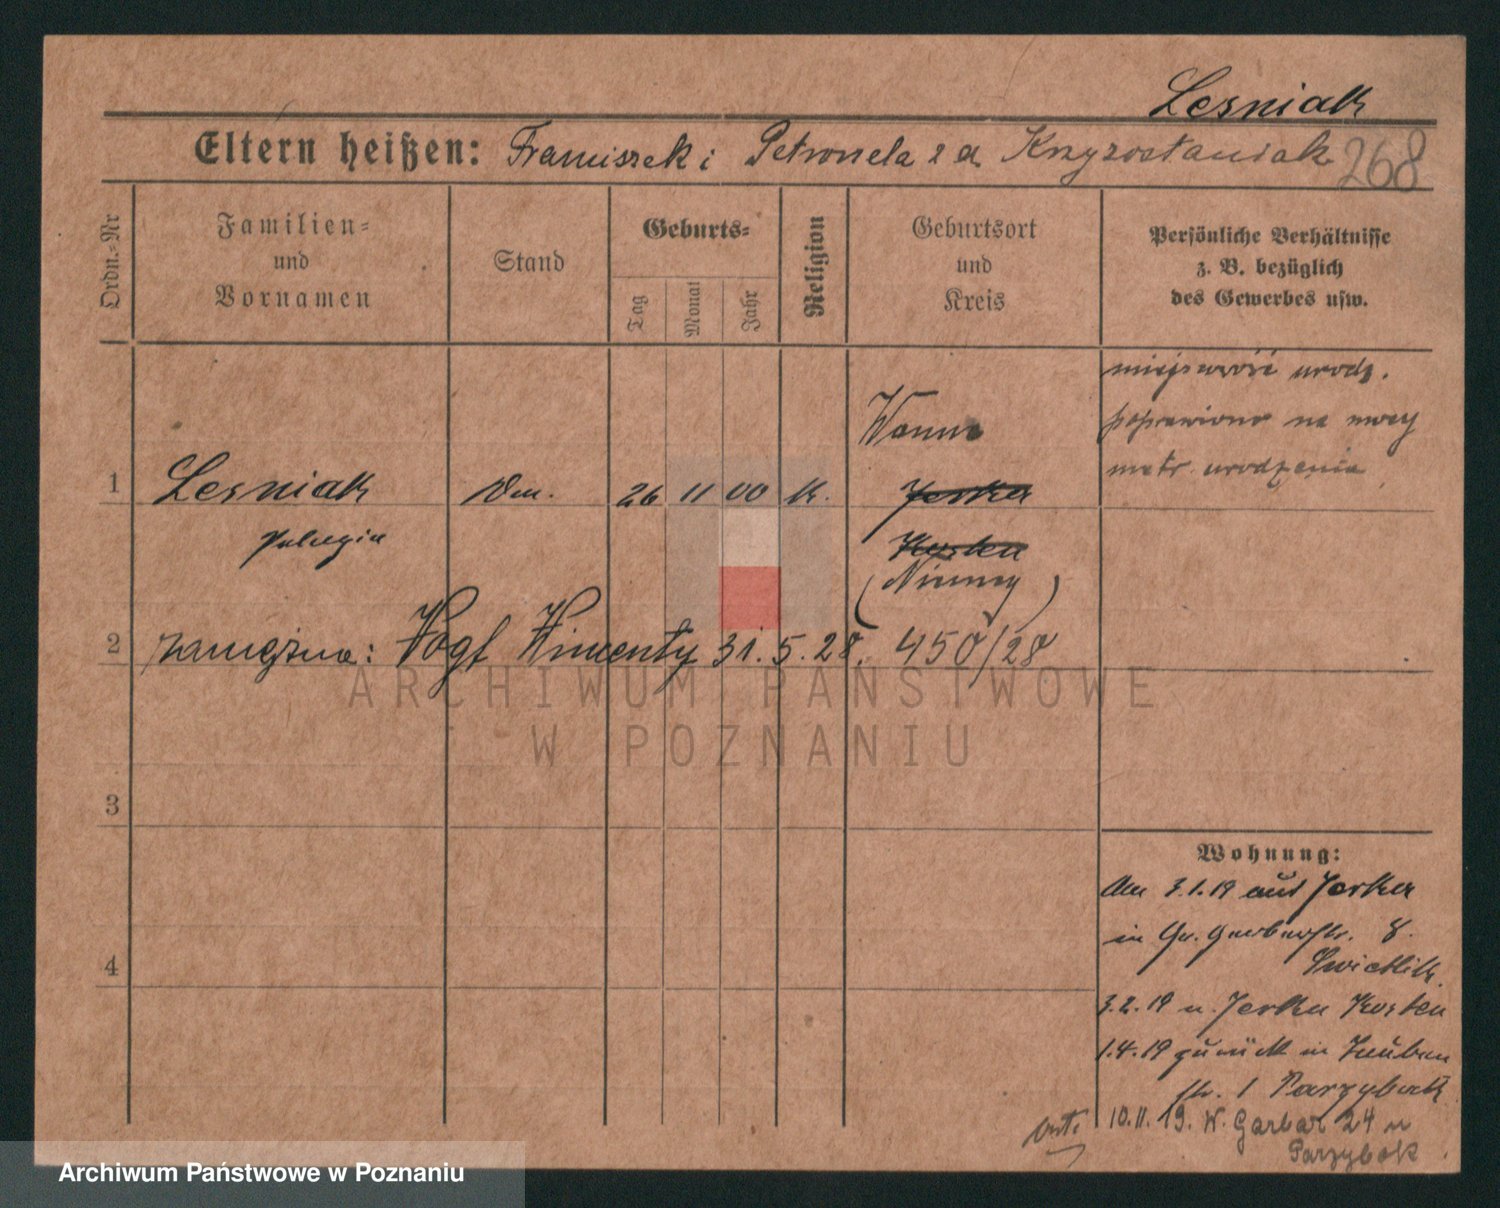 Lesniak
Eltern heißen: Franciszek i Petronela z d. Krzyzostaniak
268
Ordn.-Nr
Familien-
und
Vornamen
Stand
Geburts-
Tag
Monat
Jahr
Religion
Geburtsort
und
Kreis
Persönliche Verhältnisse
z. B. bezüglich
des Gewerbes usw.
miejscowość urodz.
poprawiono na mocy
metr. urodzenia
Wanne
1 Lesniak 26 11 00 k. Jerka
Pelagia
Kosten
(Niemcy)
2 zamężna: Vogt Wincenty 31.5.28. 450/28
ARCHIWUM PAŃSTWOWE
W POZNANIU
3
4
Wohnung:
Am 3.1.19 aus Jerka
in Gr. Gerberstr. 8.
Swietlik
3.2.19 n. Jerka Kosten
1.4.19 zurück in
str. 1 Parzybock
10.11.19. W. Garbar 24 u
Parzybok
Archiwum Państwowe w Poznaniu